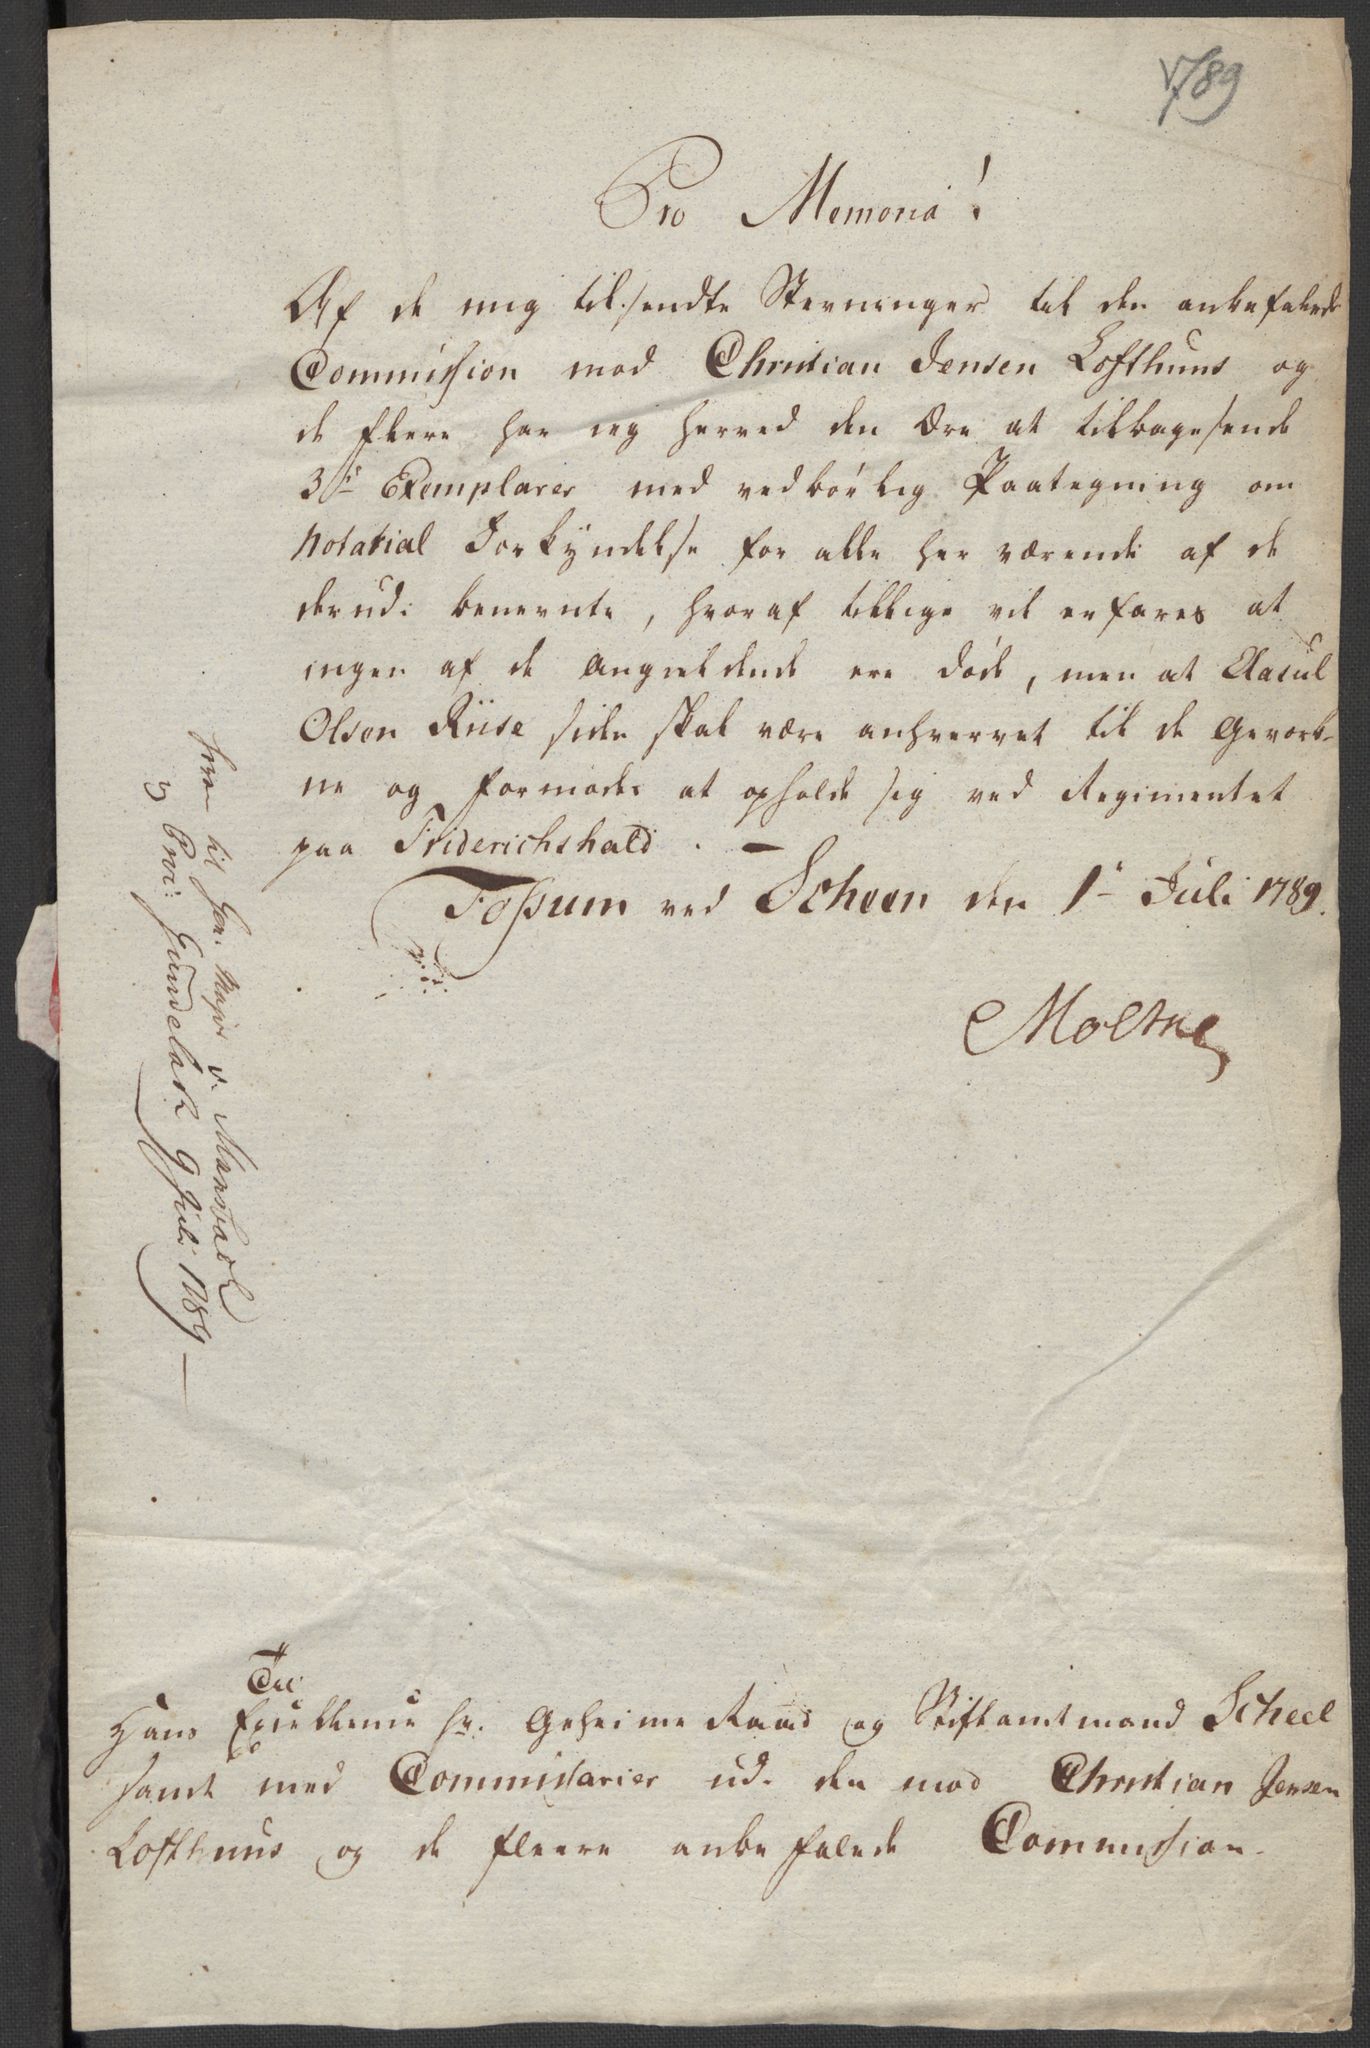 1789
Pro Memoria!
Af de mig tilsendte Stevninger til den anbefalede
Commission mod Christian Jensen Lofthuus og
de flere har ieg herved den Ære at tilbagesende
3de Exemplarer med vedbörlig Paategning om
Notarial Forkyndelse for alle her værende af de
derudi benevnte, hvoraf tillige vil erfares at
ingen af de Angieldende ere döde, men at Aasul
Olsen Riise siden skal være anhvervet til de Gevorb-
ne og formodes at opholde sig ved Regimentet
paa Friderichshald. —
Fossum ved Scheen den 1te Juli 1789.
Moltke
brev til Gen. Major v. Mansbach
og Proc: Gundelach 9 Juli 1789 —
Til
Hans Excellence Hr. Geheime Raad og Stiftamtmand Scheel
samt med Commissarier udi den mod Christian Jensen
Lofthuus og de fleere anbefalede Commission.